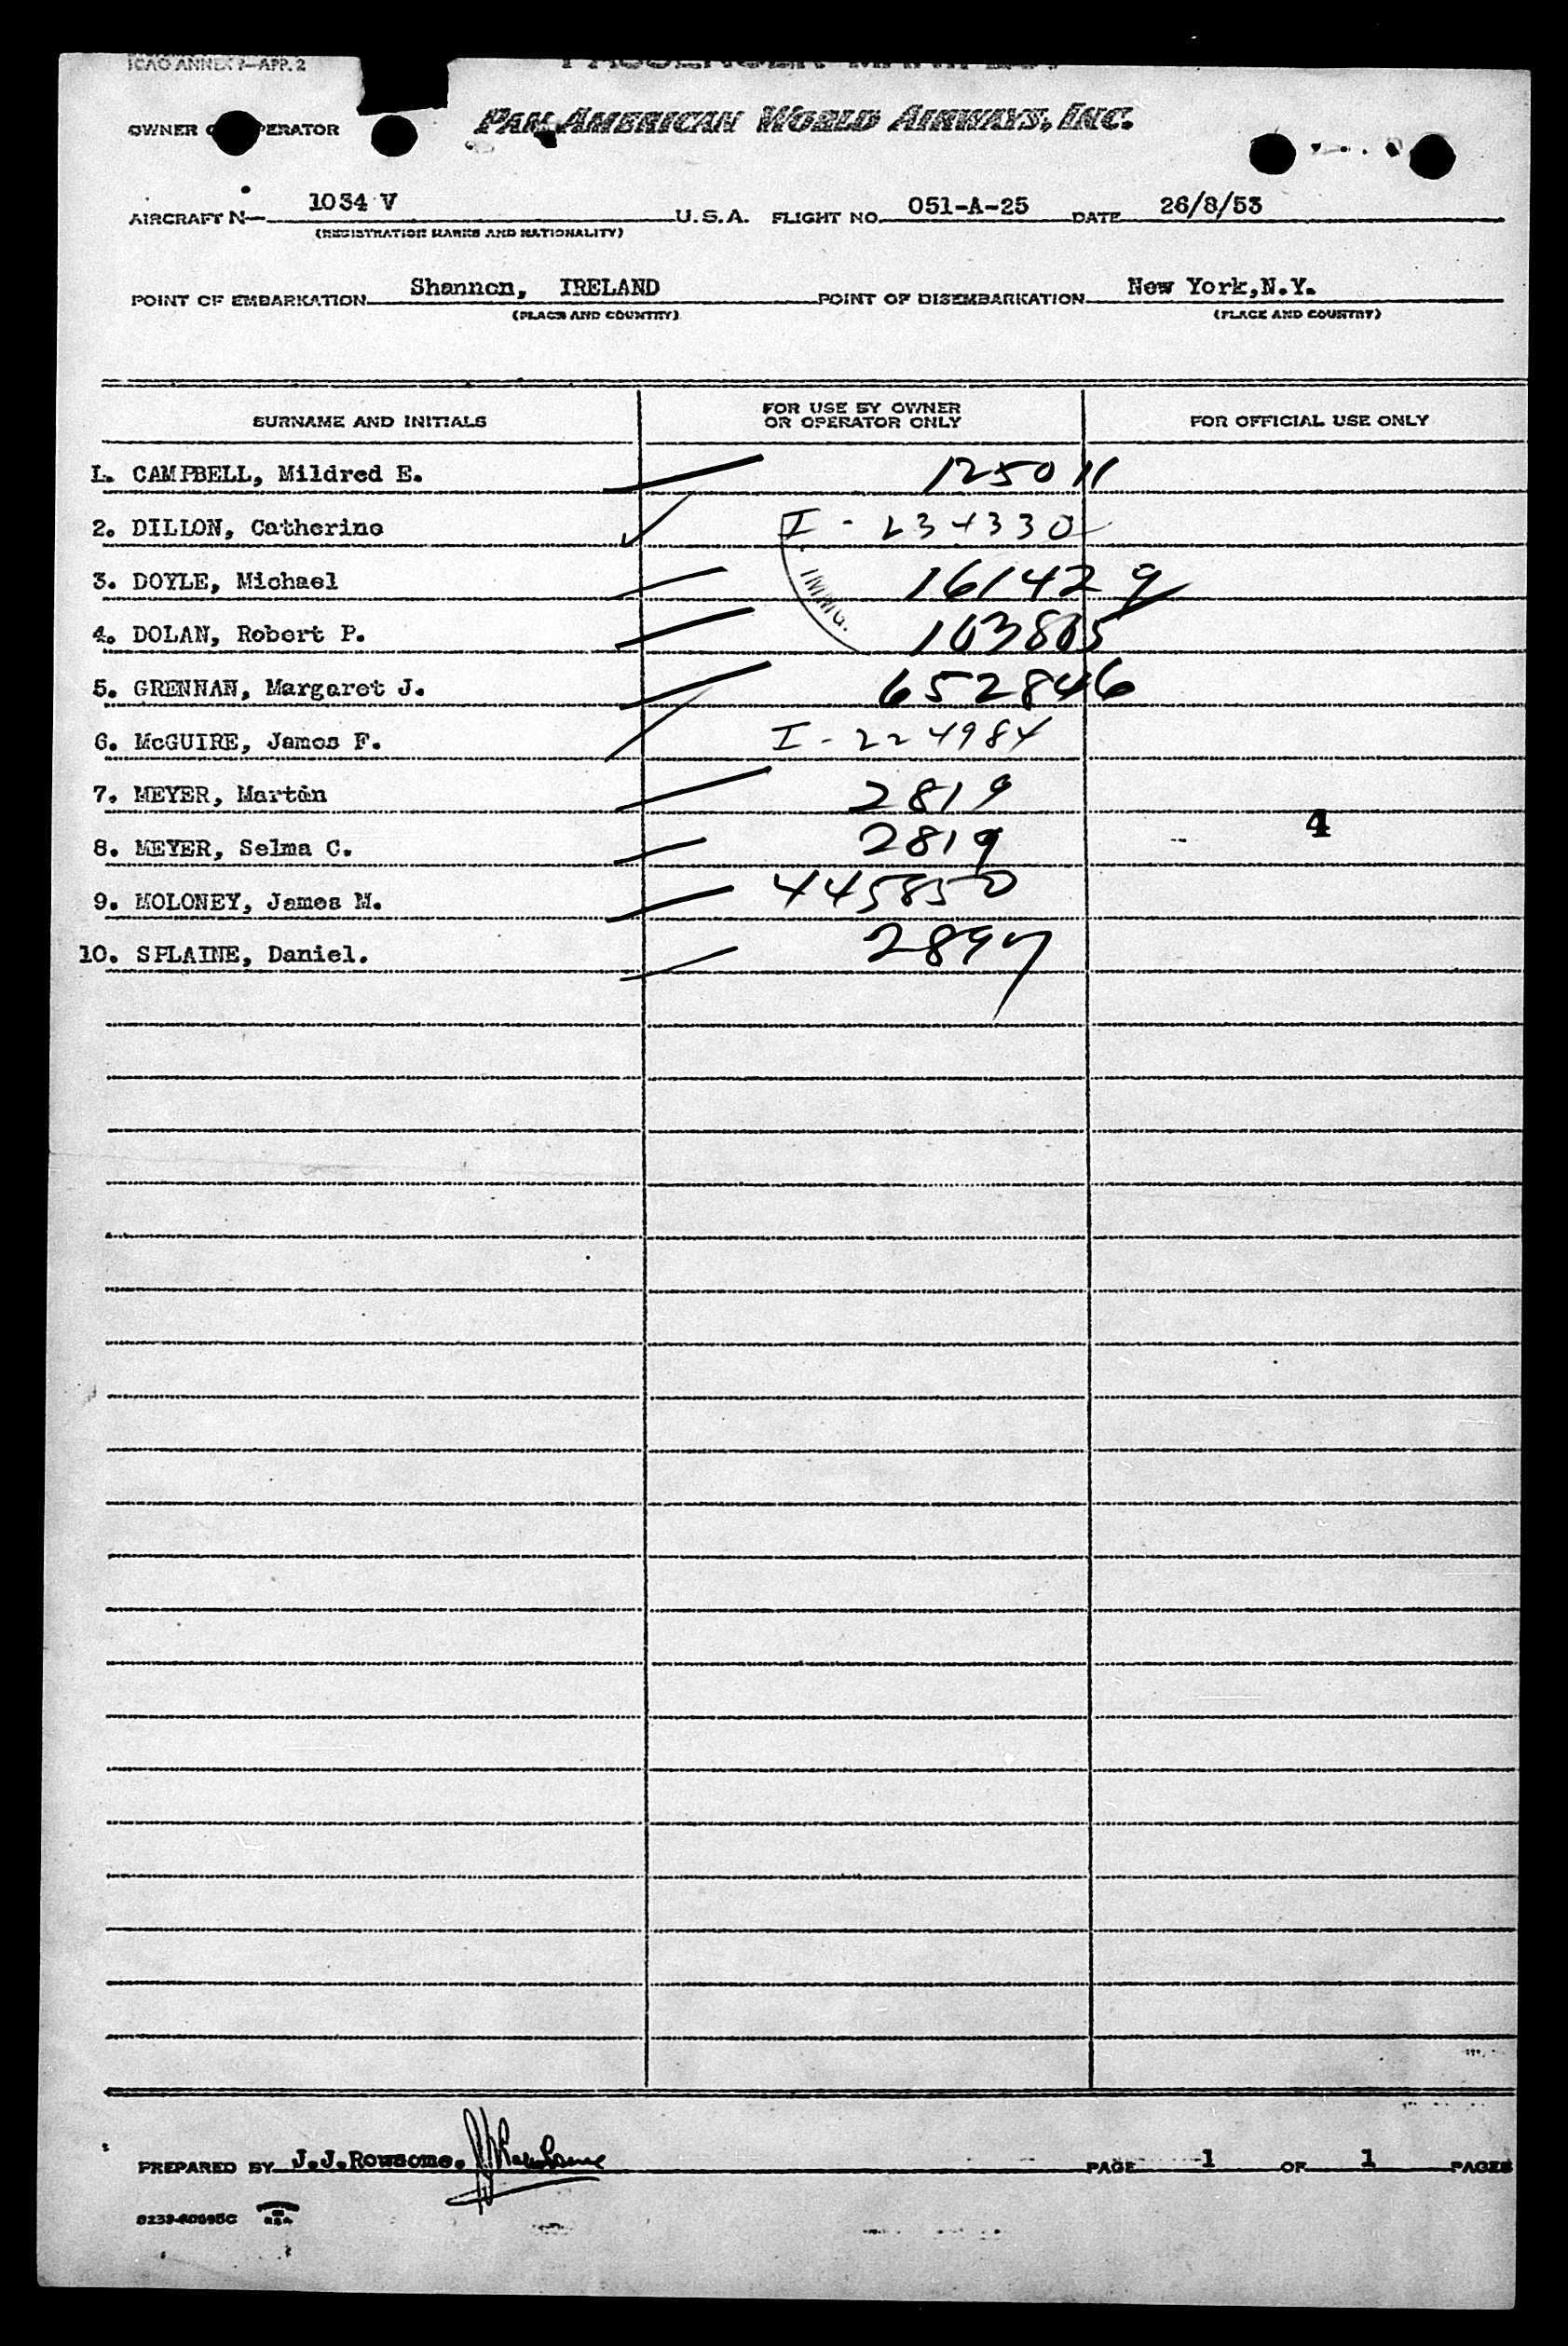 ICAO ANNEX 9—APP. 2
PASSENGER MANIFEST
OWNER OR OPERATOR PAN AMERICAN WORLD AIRWAYS, INC.
AIRCRAFT N— 1034 V U.S.A. FLIGHT NO. 051-A-25 DATE 26/8/53
(REGISTRATION MARKS AND NATIONALITY)
POINT OF EMBARKATION Shannon, IRELAND POINT OF DISEMBARKATION New York,N.Y.
(PLACE AND COUNTRY) (PLACE AND COUNTRY)
SURNAME AND INITIALS FOR USE BY OWNER OR OPERATOR ONLY FOR OFFICIAL USE ONLY
1. CAMPBELL, Mildred E. 125011
2. DILLON, Catherine I - 234330
IMMG.
3. DOYLE, Michael 161429
4. DOLAN, Robert P. 103805
5. GRENNAN, Margaret J. 652846
6. McGUIRE, James F. I - 224984
7. MEYER, Martin 2819
4
8. MEYER, Selma C. 2819
9. MOLONEY, James M. 445850
10. SPLAINE, Daniel. 2897
PREPARED BY J.J.Rowsome. JJRowsome PAGE 1 OF 1 PAGES